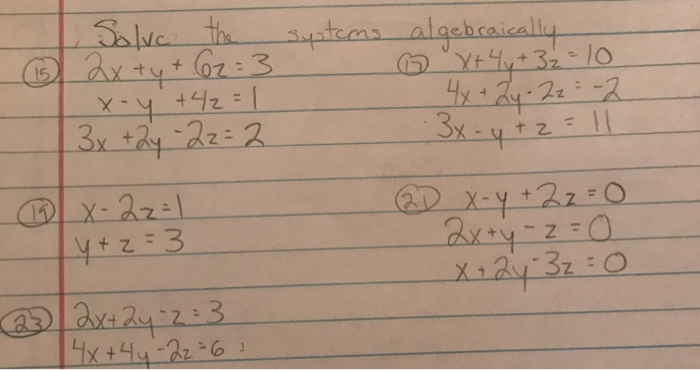 Solve the systems algebraically
(15) 2x + y + 6z = 3
x - y + 4z = 1
3x + 2y - 2z = 2
(17) x + 4y + 3z = 10
4x + 2y - 2z = -2
3x - y + z = 11
(19) x - 2z = 1
y + z = 3
(21) x - y + 2z = 0
2x + y - z = 0
x + 2y - 3z = 0
(23) 2x + 2y - z = 3
4x + 4y - 2z = 6